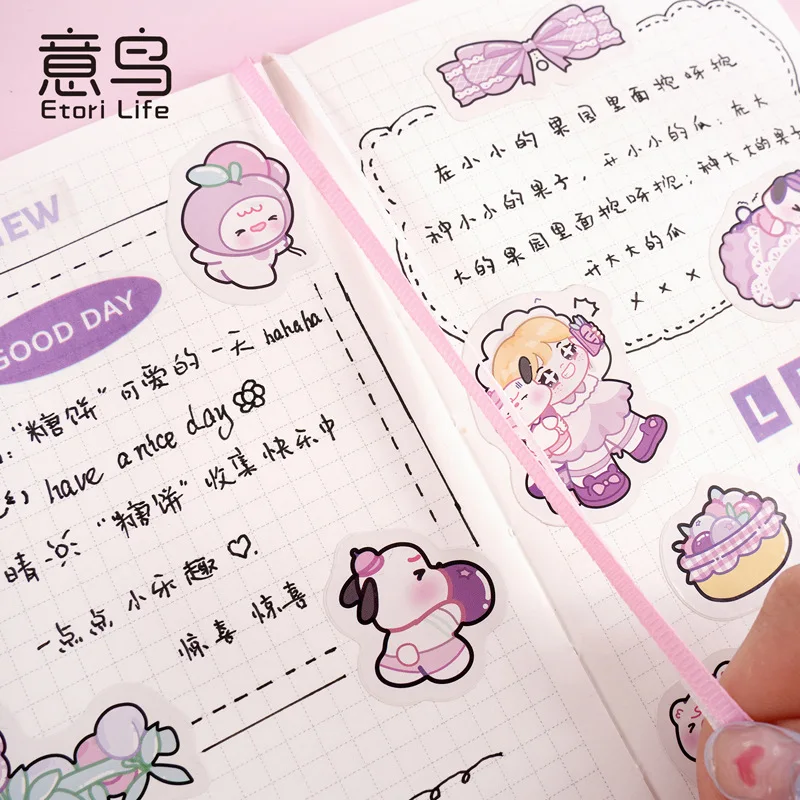 意鸟
Etori Life
GOOD DAY
"糖饼"可爱的一天 hahaha
have a nice day
晴 "糖饼"收集快乐中
一点点 小乐趣
惊喜 惊喜
在小小的果园里面挖呀挖
种小小的果子，开小小的瓜；在大
大的果园里面挖呀挖；种大大的果子
开大大的瓜
x x x
L